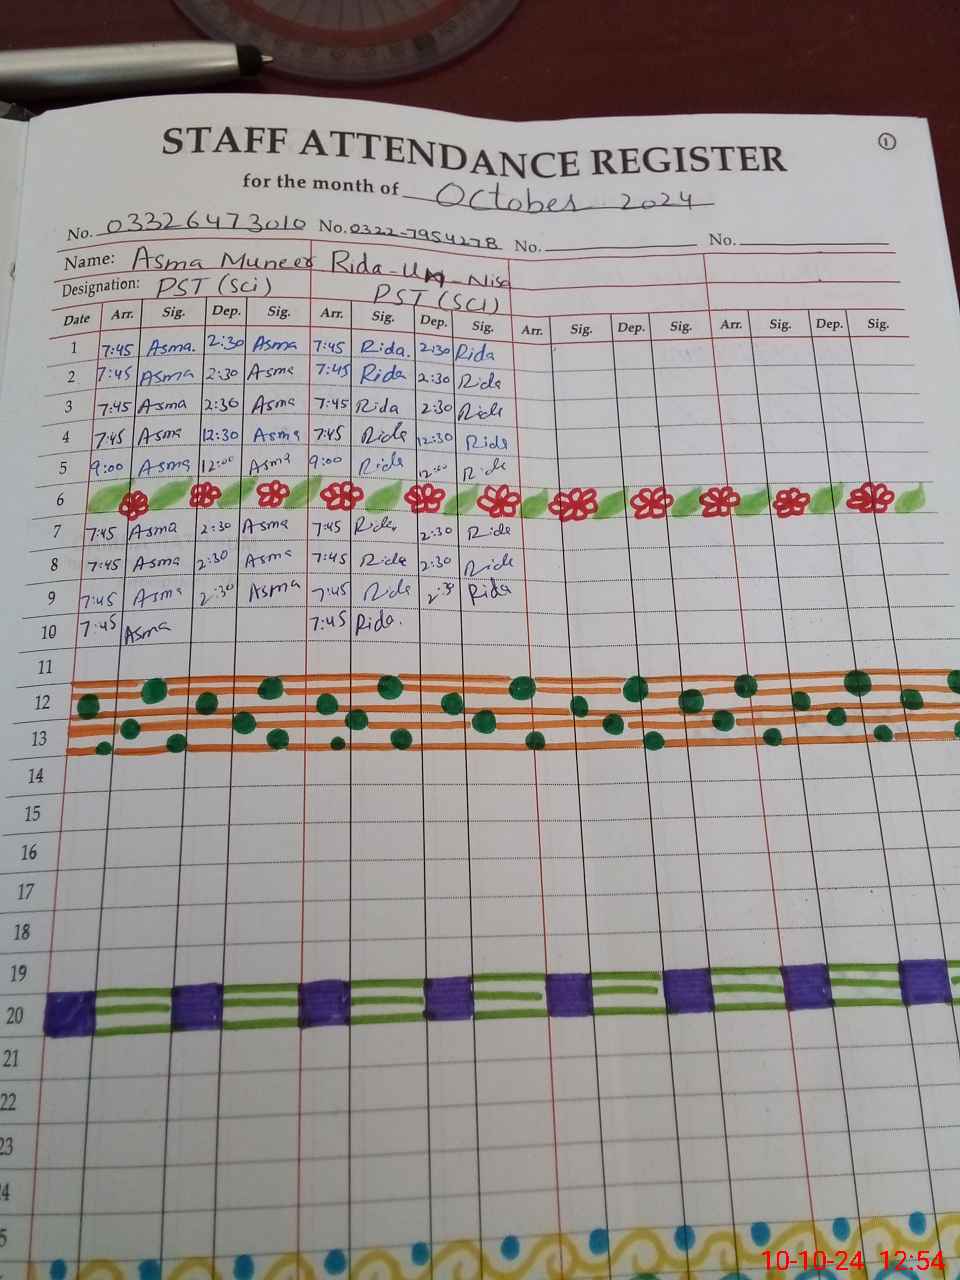 STAFF ATTENDANCE REGISTER
1
for the month of October 2024
No. 03326473010 No. 0322-7954278 No. No.
Name: Asma Muneer Rida-Un-Nisa
Designation: PST (Sci) PST (SCI)
Date Arr. Sig. Dep. Sig. Arr. Sig. Dep. Sig. Arr. Sig. Dep. Sig. Arr. Sig. Dep. Sig.
1 7:45 Asma. 2:30 Asma 7:45 Rida. 2:30 Rida
2 7:45 Asma 2:30 Asma 7:45 Rida 2:30 Rida
3 7:45 Asma 2:30 Asma 7:45 Rida 2:30 Rida
4 7:45 Asma 12:30 Asma 7:45 Rida 12:30 Rida
5 9:00 Asma 12:00 Asma 9:00 Rida 12:00 Rida
6
7 7:45 Asma 2:30 Asma 7:45 Rida 2:30 Rida
8 7:45 Asma 2:30 Asma 7:45 Rida 2:30 Rida
9 7:45 Asma 2:30 Asma 7:45 Rida 2:30 Rida
10 7:45 Asma 7:45 Rida.
11
12
13
14
15
16
17
18
19
20
21
22
23
24
5
10-10-24 12:54